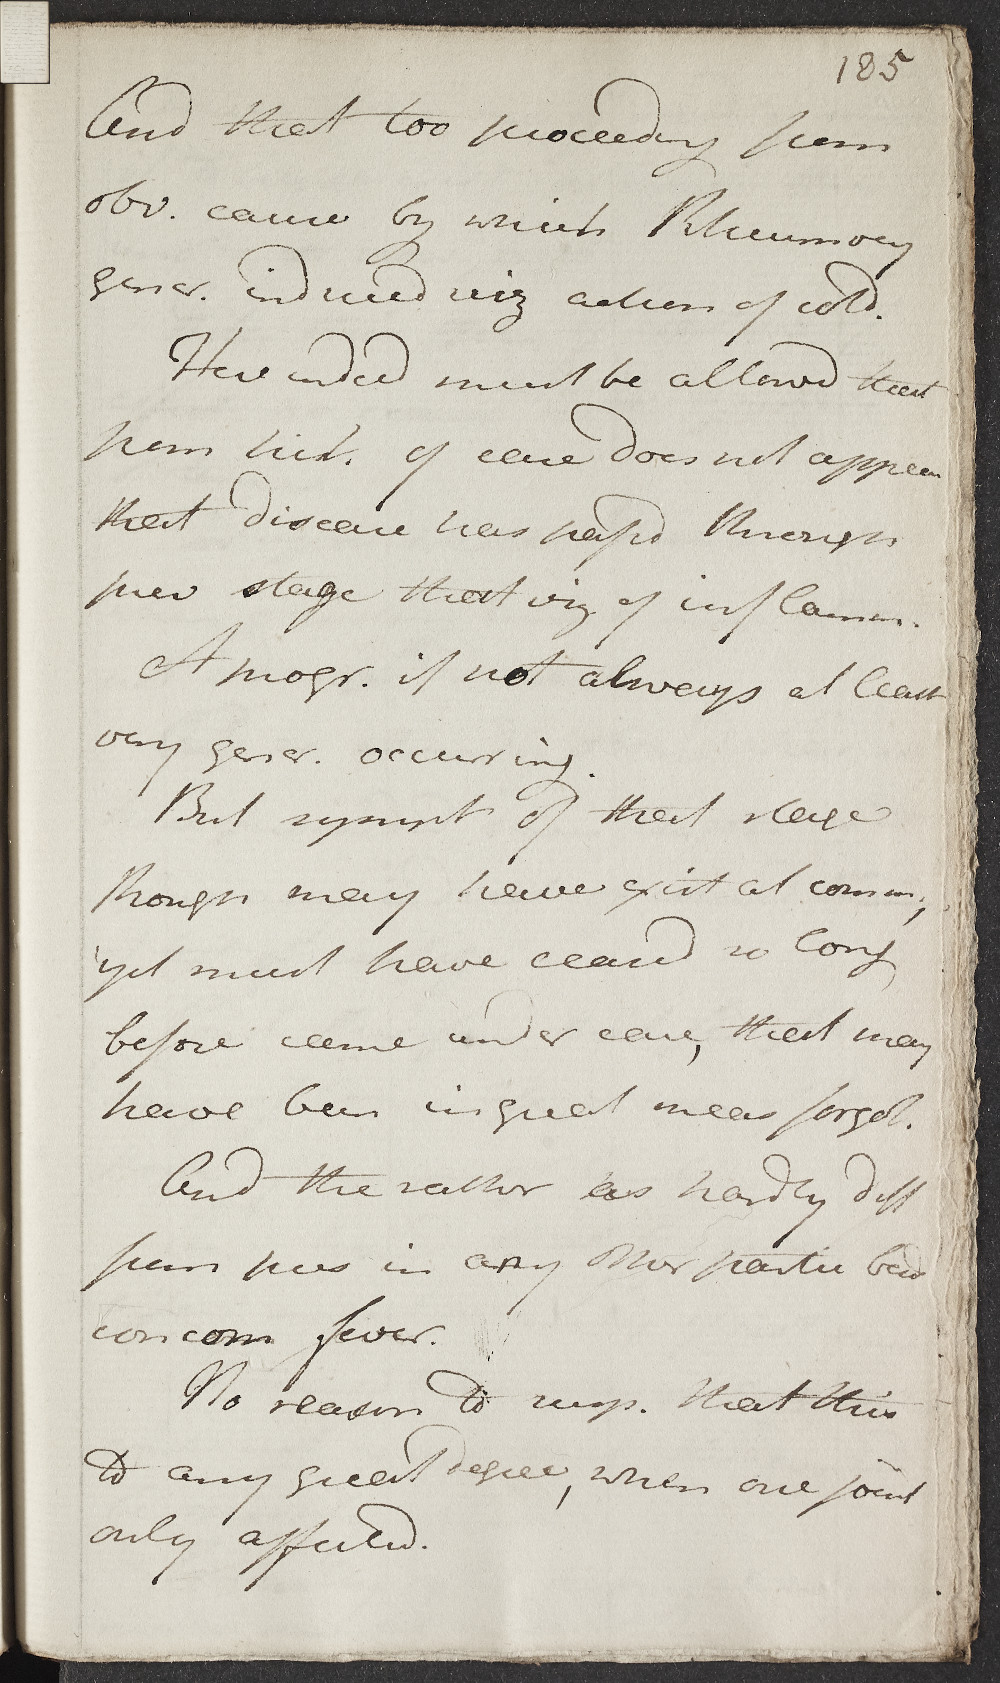 185
And that too proceeding from
obv. cause by which Rheum very
gener. induced viz action of cold.
Here indeed must be allowd that
from hist. of case does not appear
that disease has passd through
prev stage that viz of inflamm.
A progr. if not always at least
very gener. occurring.
But sympt of that stage
though may have exist at comm,
yet must have ceasd so long
before came under care, that may
have been in great meas forgot.
And the rather as hardly diff
from in any other partic but
concom fever.
No reason to sup. that this
to any great degree, when one joint
only affected.